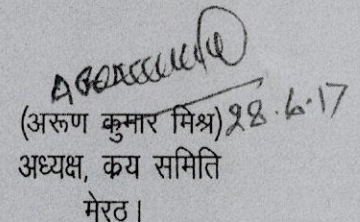 (अरूण कुमार मिश्र) 28.6.17
अध्यक्ष, कय समिति
मेरठ।